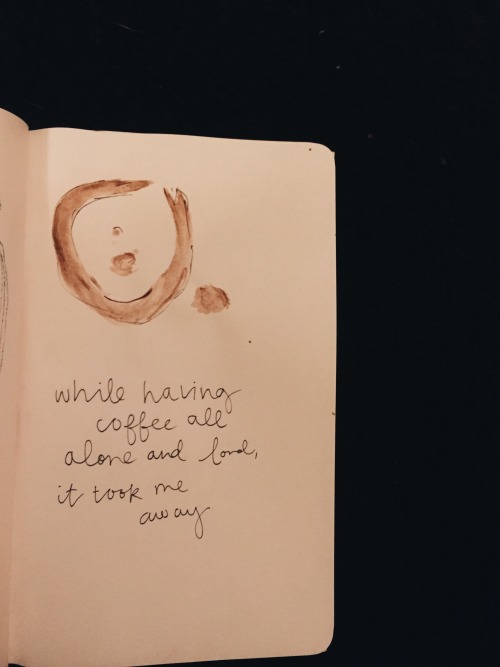 while having
coffee all
alone and lord,
it took me
away